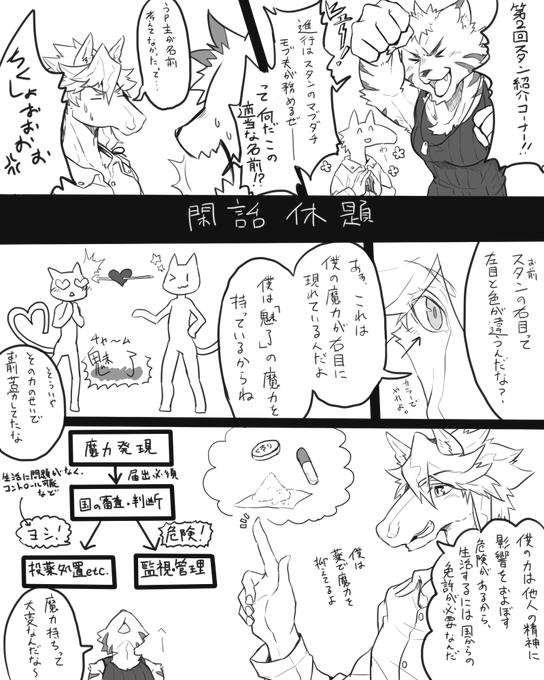 第2回スタン紹介コーナー!!
進行はスタンのマブダチ
モブ夫が務めるぜ
イエーイ!
って何だこの
適当な名前!?
うp主が名前
考えてなかったって…
ちくしょおおおお
閑話休題
お前
スタンの右目って
左目と色が違うんだな?
カラーで
やれよ。
あぁ、これは
僕の魔力が右目に
現れているんだよ
僕は「魅了」の魔力を
持っているからね
チャーム
魅了
そういや
その力のせいで
お前苦労してたな
僕の力は他人の精神に
影響をおよぼす
危険があるから、
生活するには国からの
免許が必要なんだ
くすり
僕は
薬で魔力を
抑えてるよ
魔力発現
届出必須
国の審査・判断
生活に問題がなく、
コントロール可能
など
ヨシ!
危険!
投薬処置etc.
監視・管理
魔力持ちって
大変なんだな〜